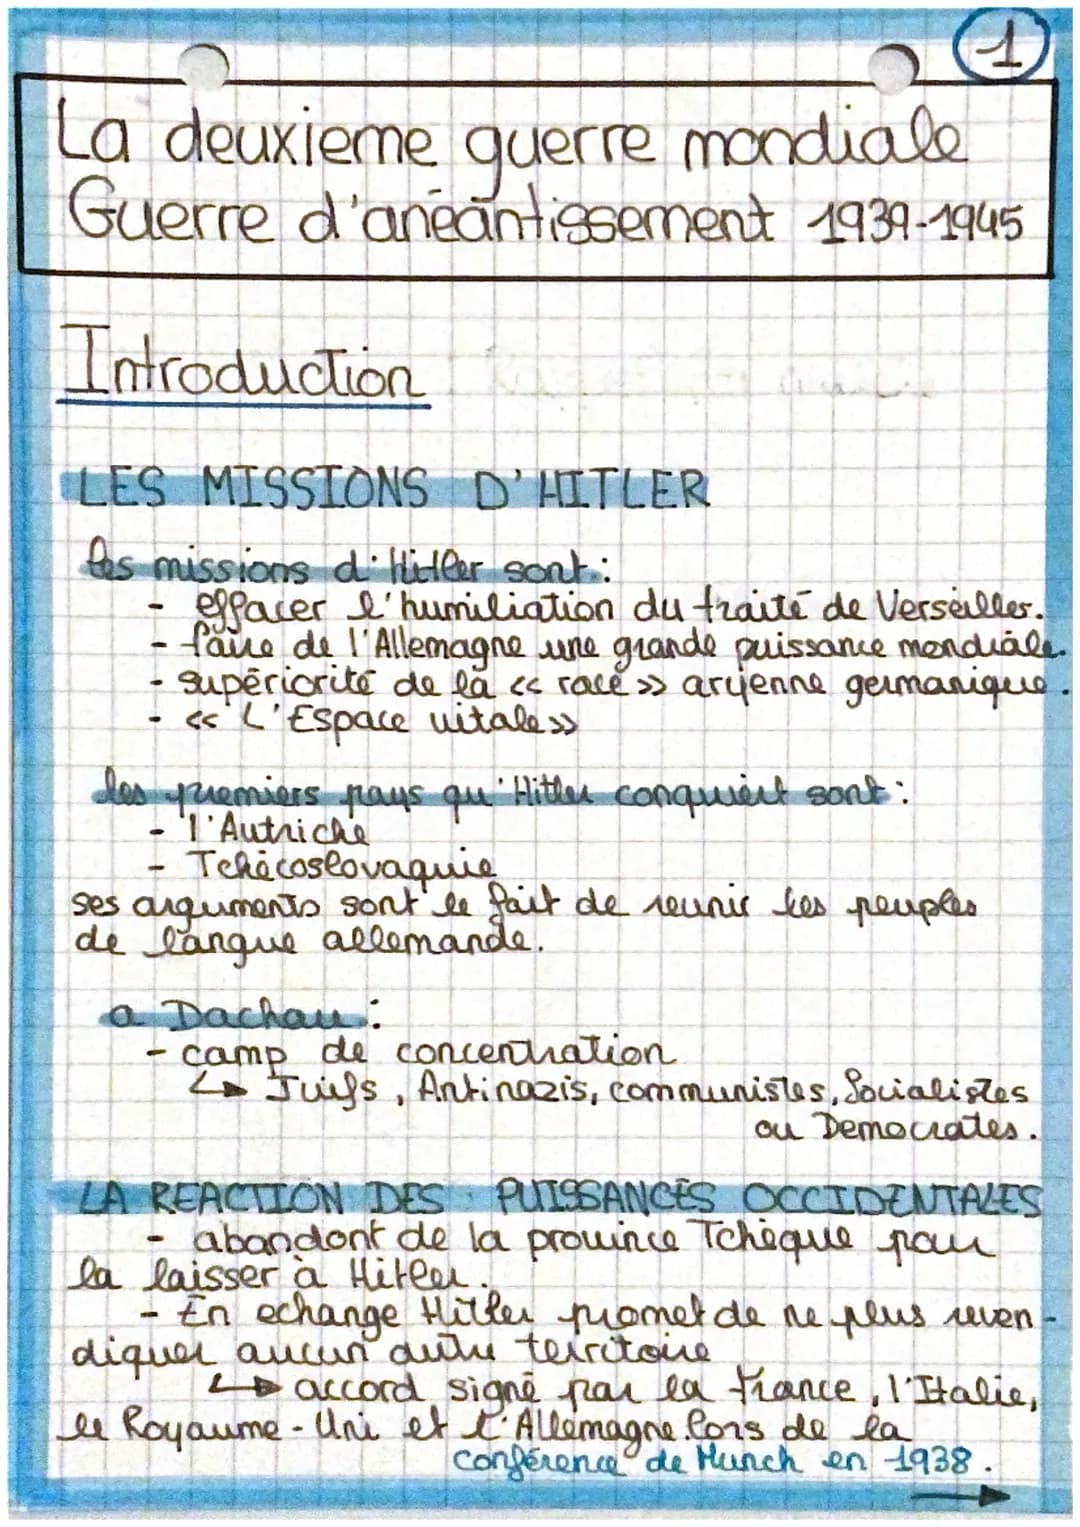 1
La deuxieme guerre mondiale
Guerre d'anéantissement 1939-1945
Introduction
LES MISSIONS D'HITLER
les missions d'Hitler sont :
- effacer l'humiliation du traité de Verseilles.
- faire de l'Allemagne une grande puissance mondiale.
- supériorité de la << race >> aryenne germanique.
- << L'Espace vitale >>
les premiers pays qu'Hitler conquiert sont :
- l'Autriche
- Tchécoslovaquie
ses arguments sont le fait de reunir les peuples
de langue allemande.
a Dachau :
- camp de concentration
↳ Juifs, Antinazis, communistes, Socialistes
ou Democrates.
LA REACTION DES PUISSANCES OCCIDENTALES
- abandont de la province Tchèque pour
la laisser à Hitler.
- En echange Hitler promet de ne plus reven-
diquer aucun autre territoire
↳ accord signé par la France, l'Italie,
le Royaume-Uni et l'Allemagne lors de la
conférence de Munch en 1938.
→